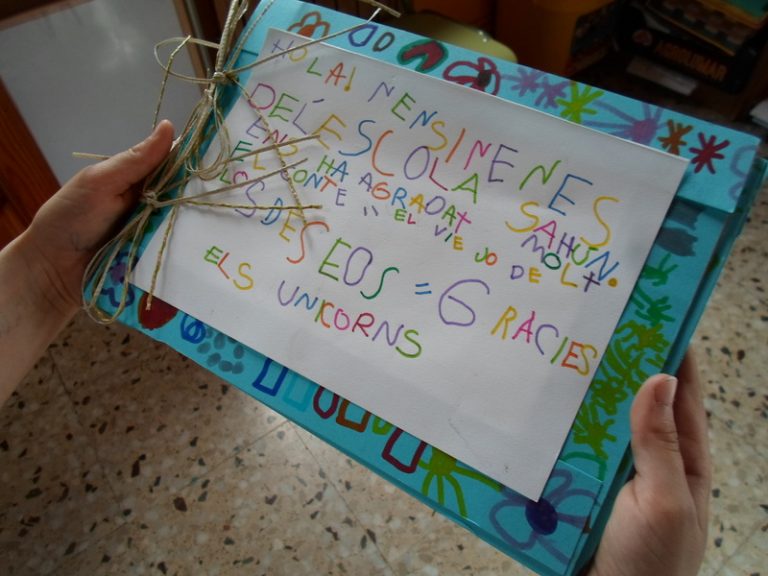 HOLA! NENSINENES
DEL'ESCOLA SAHÚN.
ENS HA AGRADAT MOLT
EL CONTE " EL VIEJO DE
LOS DESEOS = GRACIES
ELS UNICORNS